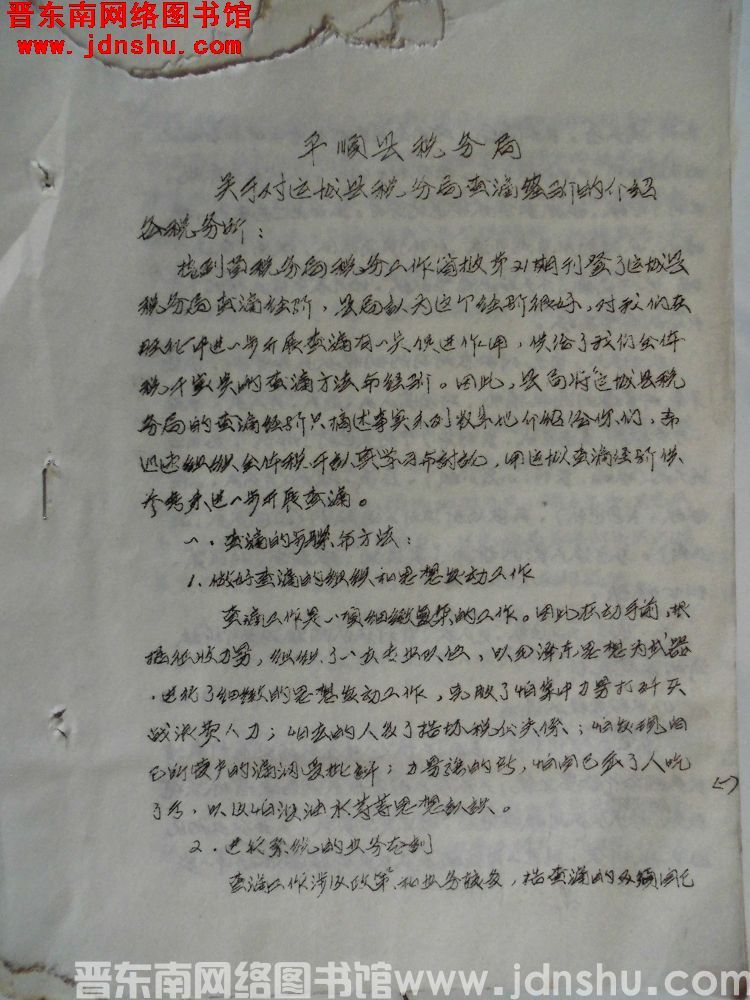 晋东南网络图书馆
www.jdnshu.com
平顺县税务局
关于对运城县税务局查漏经验的介绍
各税务所：
接到省税务局税务工作简报第21期刊登了运城县
税务局查漏经验，县局认为这个经验很好，对我们在
进一步开展查漏有一定促进作用，供给了我们全体
税干宝贵的查漏方法和经验。因此，县局将运城县税
务局的查漏经验只摘述事实系列数字地介绍给你们，希
迅速组织全体税干认真学习和讨论，用运城查漏经验供
参考来进一步开展查漏。
一．查漏的步骤和方法：
1．做好查漏的组织和思想发动工作
查漏工作是一项细致复杂的工作。因此在动手前，根
据征收力量，组织了一支专业队伍，以毛泽东思想为武器
进行了细致的思想发动工作，克服了怕集中力量打歼灭
战浪费人力；怕查的人多了搞坏税企关系；怕发现自
己所管户的漏洞受批评；力量强的所，怕自己去了人吃
了亏，以及怕没油水等等思想认识。
2．进行系统的业务
查漏工作涉及政策和业务较多，搞查漏的必须自己
晋东南网络图书馆www.jdnshu.com